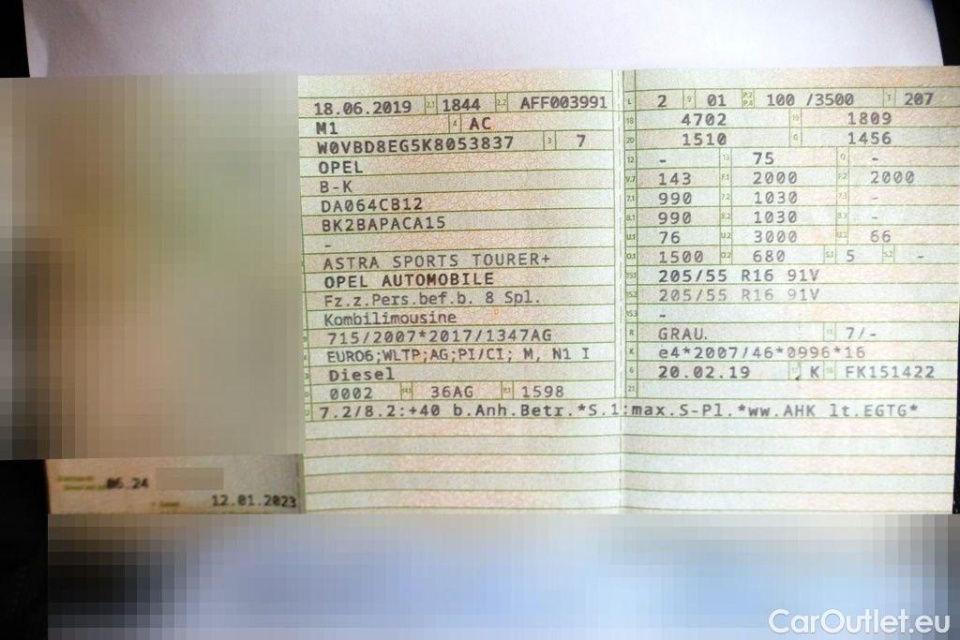 18.06.2019 2.1 1844 2.2 AFF003991
M1 4 AC
W0VBD8EG5K8053837 3 7
OPEL
B-K
DA064CB12
BK2BAPACA15
-
ASTRA SPORTS TOURER+
OPEL AUTOMOBILE
Fz.z.Pers.bef.b. 8 Spl.
Kombilimousine
715/2007*2017/1347AG
EURO6;WLTP;AG;PI/CI; M, N1 I
Diesel
0002 36AG 1598
7.2/8.2:+40 b.Anh.Betr.*S.1:max.S-Pl.*ww.AHK lt.EGTG*
L 2 9 01 100 /3500 T 207
18 4702 19 1809
20 1510 G 1456
12 - 13 75 Q -
V.7 143 F.1 2000 F.2 2000
7.1 990 7.2 1030 7.3 -
8.1 990 8.2 1030 8.3 -
U.1 76 U.2 3000 U.3 66
O.1 1500 O.2 680 S.1 5 S.2 -
15.1 205/55 R16 91V
15.2 205/55 R16 91V
15.3 -
R GRAU. 11 7/-
K e4*2007/46*0996*16
6 20.02.19 17 K 16 FK151422
21
06.24
12.01.2023
CarOutlet.eu